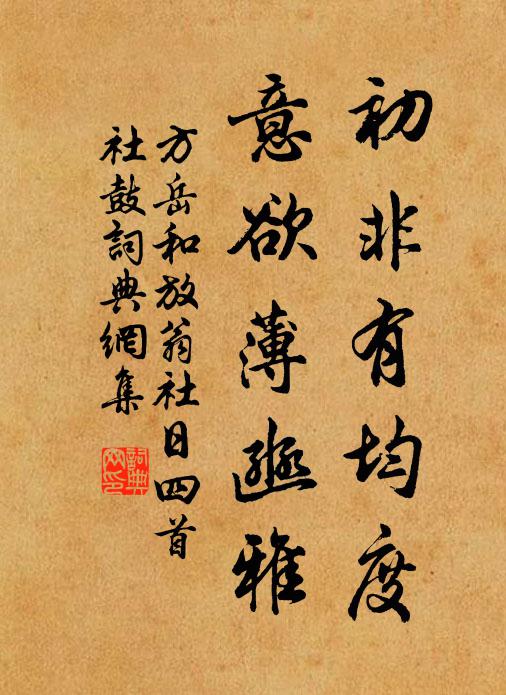 初非有均度
意欲薄豳雅
方岳和放翁社日四首
社鼓詞典網集
詞典網印